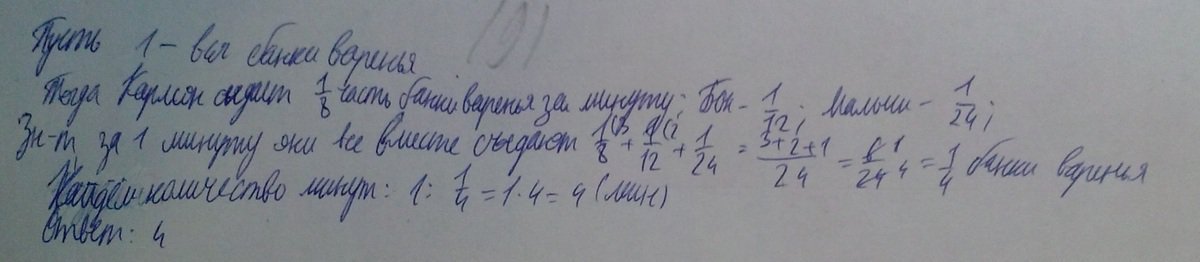 Пусть 1 - вся банка варенья
Тогда Карлсон съедает 1/8 часть банки варенья за минуту; Бок - 1/12; Малыш - 1/24;
Зн-т, за 1 минуту они все вместе съедают 1/8 (3 + 1/12 (2 + 1/24 = 3+2+1/24 = 6/24 1 4 = 1/4 банки варенья
Найдём количество минут: 1 : 1/4 = 1·4 = 4 (мин)
Ответ: 4